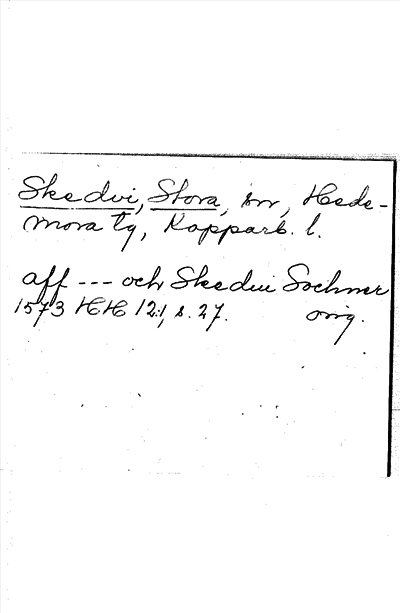 Skedvi, Stora, sn, Hede-
mora tg, Kopparb. l.
aff --- och Skedui Sochner
1573 HH 12:1, s. 27. orig.